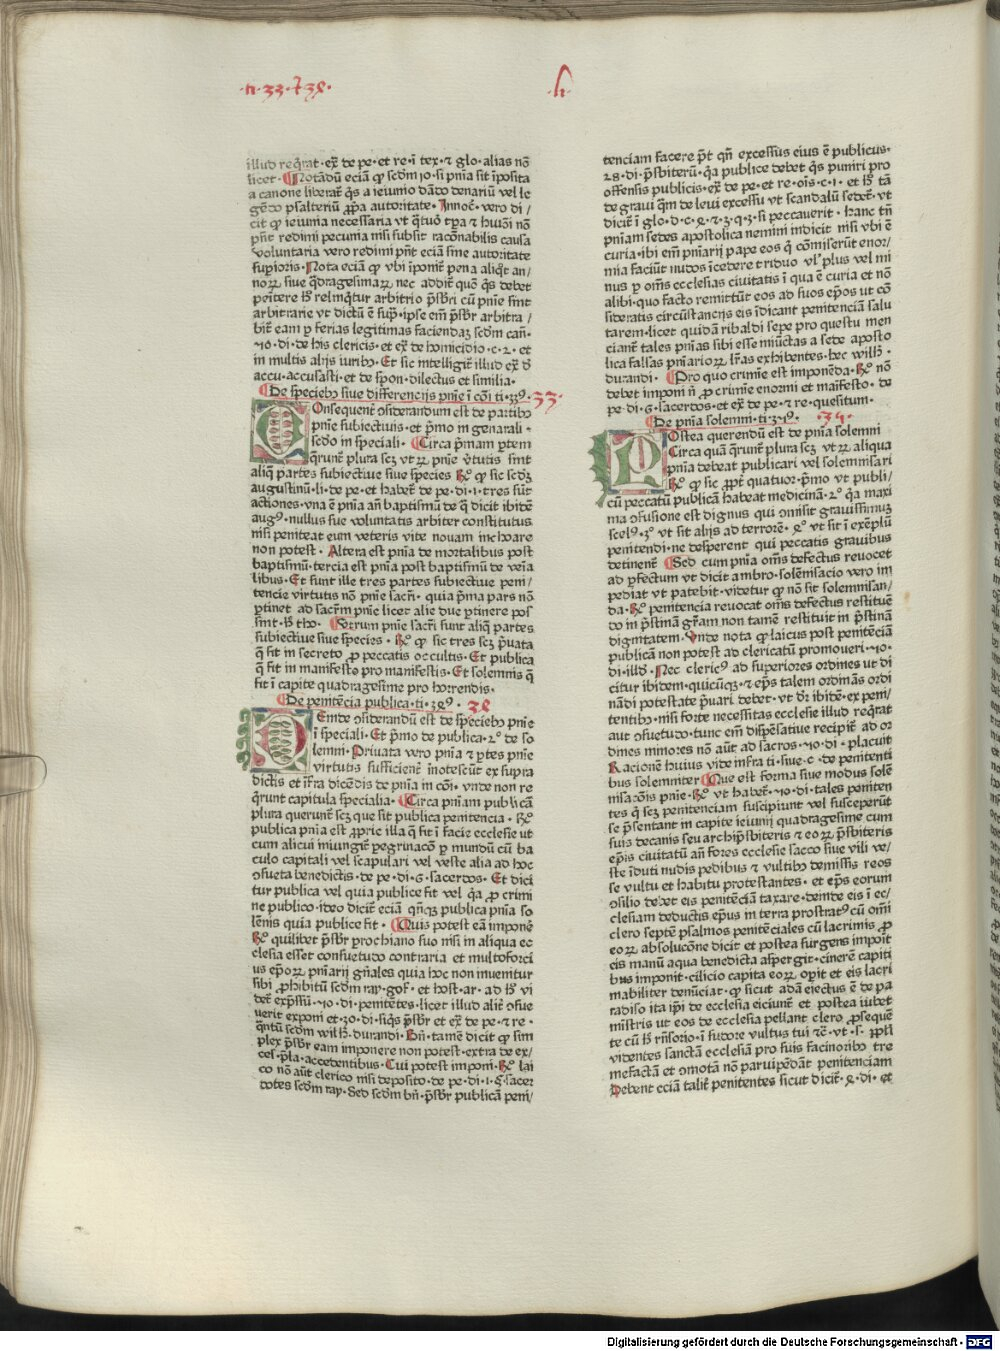 ·ti·33·⁊·34·
·h·
illud req̄rat·ex̄ de pe·et re·ī tex·⁊ glo·alias nō
licet·Notādū eciā ꝙ scdm io·si pn̄ia sit īposita
a canone liberat᷑ q̄s a ieiunio dādo denariū vel le
gēdo psalteriū ꝓpa autoritate·Innoc̄·vero di/
cit ꝙ ieiunia necessaria vt q̄tuo tꝑa ⁊ huiōi nō
pn̄t redimi pecunia nisi subsit racōnabilis causa
voluntaria vero redimi pn̄t eciā sine autoritate
supioris·Nota eciā ꝙ vbi īponit᷑ pena aliq̄t an/
noꝝ siue q̄dragesimaꝝ nec addit᷑ quō q̄s debet
penitere hʒ relinq̄tur arbitrio p̄sbr̄i cū pn̄ie sint
arbitrarie vt dictū ē sup̄·ipse em̄ p̄sbr̄ arbitra/
bit᷑ eam ꝑ ferias legitimas faciendaʒ scdm can̄·
·10·di·de his clericis·et ex̄ de homicidio·c·2·et
in multis alijs iuribꝰ·Et sic intelligit᷑ illud ex̄ d̄
accu·accusasti·et de spon·dilectus et similia·
De speciebꝰ siue differencijs pn̄ie ī cōi ti·33ꝰ·33·
Onsequent᷑ ꝯsiderandum est de partibꝰ
pn̄ie subiectiuis·et p̄mo in generali·
scdo in speciali·Circa p̄mam ꝑtem
q̄runt᷑ plura scʒ vtꝝ pn̄ie v̄tutis sint
aliq̄ partes subiectiue siue species Rꝰ ꝙ sic scdʒ
augustinū·li·de pe·et habet᷑ de pe·di·1·tres sūt
actiones·vna ē pn̄ia an̄ baptismū de q̄ dicit ibidē
augꝰ·nullus sue voluntatis arbiter constitutus
nisi peniteat eum veteris vite nouam inchoare
non potest·Altera est pn̄ia de mortalibus post
baptismū·tercia est pn̄ia post baptismū de veīa
libus·Et sunt ille tres partes subiectiue peni/
tencie virtutis nō pn̄ie sacr̄i·quia p̄ma pars nō
ꝑtinet ad sacr̄m pn̄ie licet alie due ꝑtinere pos
sint·b̄ tho·Iterum pn̄ie sacr̄i sunt aliq̄ partes
subiectiue siue species·Rꝰ ꝙ sic tres scʒ p̄uata
q̄ fit in secreto ꝓ peccatis occultis·Et publica
q̄ fit in manifesto pro manifestis·Et solemnis q̄
fit ī capite quadragesime pro horrendis·
De penitēcia publica·ti·34ꝰ·34
Einde ꝯsiderandū est de speciebꝰ pn̄ie
ī speciali·Et p̄mo de publica·2ꝰ de so
lemni·Priuata vero pn̄ia ⁊ ꝑtes pn̄ie
virtutis sufficient᷑ inotescūt ex supra
dictis et īfra dicēdis de pn̄ia in cōi·vnde non re
q̄runt capitula specialia·Circa pn̄iam publicā
plura querunt᷑ scʒ que sit publica penitencia·Rꝰ
publica pn̄ia est ꝓprie illa q̄ fit ī facie ecclesie ut
cum alicui iniungit᷑ pegrinacō ꝑ mundū cū ba
culo capitali vel scapulari vel veste alia ad hoc
ꝯsueta benedictis·de pe·di·6·sacerdos·Et dici
tur publica vel quia publice fit vel q̄a ꝓ crimi
ne publico·ideo dicit᷑ eciā qn̄qʒ publica pn̄ia so
lēnis quia publice fit·Quis potest eā imponē
Rꝰ quilibet p̄sbr̄ ꝓrochiano suo nisi in aliqua ec
clesia esset consuetudo contraria et multoforci
us epōꝝ pn̄iarij gn̄ales quia hoc non inuenitur
sibi ꝓhibitū scdm ray·gof·et host·ar·ad hʒ vi
det᷑ exp̄ssū·40·di·penitētes·licet illud alit᷑ ꝯsue
uerit exponi et·30·di·siq̄s p̄sbr̄ et ex̄ de pe·⁊ re·
q̄ntū scdm wilh̄·durandi·Bn̄·tamē dicit ꝙ sim
plex p̄sbr̄ eam imponere non potest·extra de ex/
ces·p̄la·accedentibus·Cui potest imponi·Rꝰ lai
co nō aūt clerico nisi deposito·de pe·di·1·§·sacer
dotes scdm ray·Sed scdm bn̄·p̄sbr̄ publicā peni/
tenciam facere p̄t qn̄ excessus eius ē publicus·
28·di·p̄sbiterū·q̄a publice debet q̄s puniri pro
offensis publicis·ex̄ de pe·et re·ōis·c·1·et hʒ tā
de graui q̄m de leui excessu vt scandalū sedet᷑·vt
dicit᷑ ī glo·d·c·4·⁊·3·q·3·si peccauerit·hanc tn̄
pn̄iam sedes apostolica nemini indicit nisi vbi ē
curia·ibi em̄ pn̄iarij pape eos q̄ cōmiserūt enor/
mia faciūt nudos īcedere triduo vl̓ plus vel mi
nus ꝑ om̄s ecclesias ciuitatis ī qua ē curia et nō
alibi·quo facto remittūt eos ad suos ep̄os ut cō
sideratis circūstancijs eis īdicant penitenciā salu
tarem·licet quidā ribaldi sepe pro questu men
ciant᷑ tales pn̄ias sibi esse miūctas a sede aposto
lica falsas pn̄iarioꝝ lr̄as exhibentes·hec wilh̄·
durandi·Pro quo crimīe est imponēda·Rꝰ nō
debet imponi n̄ ꝓ crimīe enormi et maīfesto·de
pe·di·6·sacerdos·et ex̄ de pe·⁊ re·quesitum·
De pn̄ia solemni·ti·35ꝰ·35·
Ostea querendū est de pn̄ia solemni
Circa quā q̄runt᷑ plura scʒ vtꝝ aliqua
pn̄ia debeat publicari vel solemnisari
Rꝰ ꝙ sic ꝓpt᷑ quatuor·p̄mo vt publi/
cū peccatū publicā habeat medicinā·2ꝰ q̄a maxi
ma ꝯfusione est dignus qui ꝯmisit grauissimuʒ
scelꝰ·3ꝰ vt sit alijs ad terrorē·4ꝰ vt sit ī exēplū
penitendi·ne desperent qui peccatis grauibus
detinent᷑·Sed cum pn̄ia om̄s defectus reuocet
ad ꝑfectum vt dicit ambro·solēnisacio vero im
pediat vt patebit·videtur ꝙ nō sit solemnisan/
da·Rꝰ penitencia reuocat om̄s defectus restituē
do in p̄stinā gr̄am non tamē restituit in p̄stinā
dignitatem·Vnde nota ꝙ laicus post penitēciā
publicā non potest ad clericatū promoueri·40·
di·illd̄·Nec clericꝰ ad superiores ordines ut di
citur ibidem·quicūqʒ·⁊ ep̄s talem ordināns ordi
nādi potestate p̄uari debet·vt dr̄ ibidē·ex peni/
tentibꝰ·nisi forte necessitas ecclesie illud req̄rat
aut ꝯsuetudo·tunc em̄ dispēsatiue recipit᷑ ad or
dines minores nō aūt ad sacros·40·di·placuit
Racionē huius vide infra ti·siue·c·de penitenti
bus solemniter Que est forma siue modus solē
nisacōis pn̄ie·Rꝰ vt habet᷑·40·di·tales peniten
tes q̄ scʒ penitenciam suscipiunt vel susceperūt
se p̄sentant in capite ieiunij quadragesime cum
suis decanis seu archip̄sbiteris ⁊ eoꝝ p̄sbiteris
ep̄is ciuitatū an̄ fores ecclesie sacco siue vili ve/
ste īduti nudis pedibus ⁊ vultibꝰ demissis reos
se vultu et habitu protestantes·et ep̄s eorum
ꝯsilio debet eis penitēciā taxare·deinde eis ī ec/
clesiam deductis ep̄us in terra prostratꝰ cū om̄i
clero septē psalmos penitēciales cū lacrimis ꝓ
eoꝝ absolucōne dicit et postea surgens impōit
eis manū aqua benedicta aspergit·cinerē capiti
bus imponit·cilicio capita eoꝝ opit et eis lacri
mabiliter denūciat·ꝙ sicut adā eiectus ē de pa
radiso ita ip̄i de ecclesia eiciunt᷑ et postea iubet
mīstris ut eos de ecclesia pellant clero ꝓsequē
te cū hʒ rn̄sorio·ī sudore vultus tui ⁊c̄·vt·s·pp̄l̓i
videntes sanctā ecclesiā pro suis facinoribꝰ tre
mefactā et ꝯmotā nō paruipēdāt penitenciam
Debent eciā talit᷑ penitentes sicut dicit᷑·4·di·et
Digitalisierung gefördert durch die Deutsche Forschungsgemeinschaft - DFG